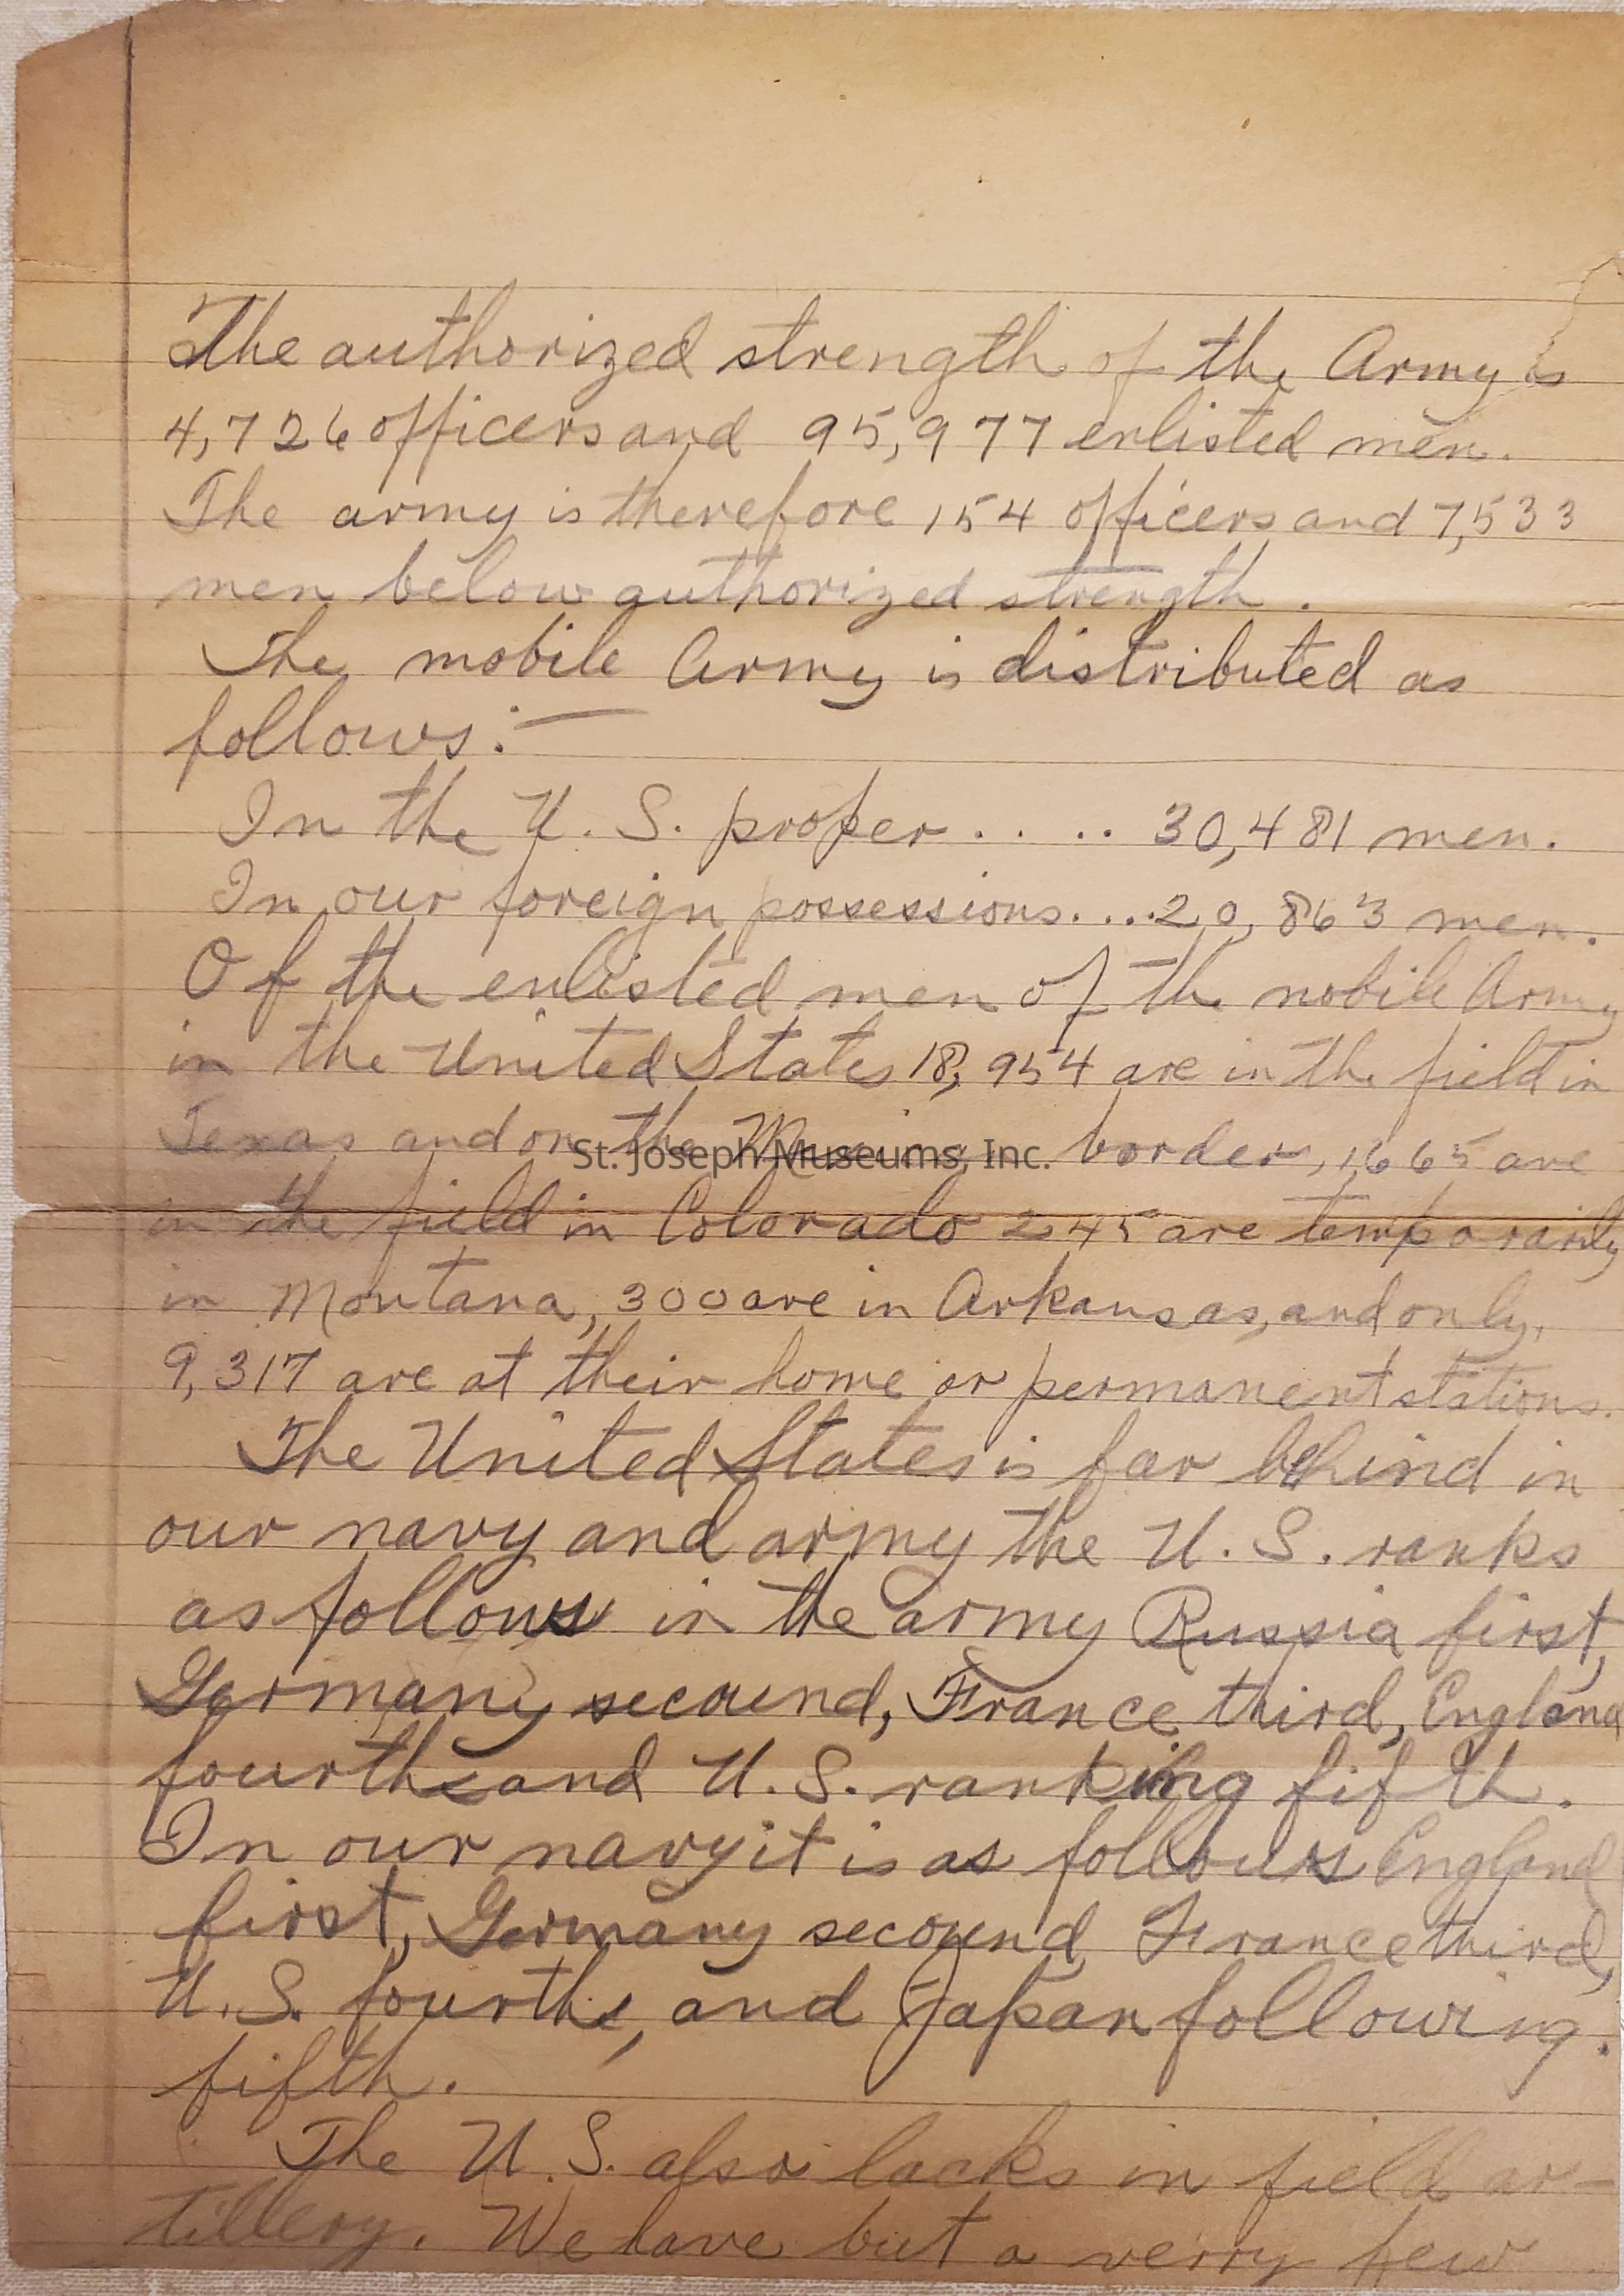 The authorized strength of the Army is
4,726 officers and 95,977 enlisted men.
The army is therefore 154 officers and 7,533
men below authorized strength.
The mobile Army is distributed as
follows:—
In the U. S. proper . . . . . 30,481 men.
In our foreign possessions. . . . 20,863 men.
Of the enlisted men of the mobile Army
in the United States 18,954 are in the field in
Texas and on the border, 1,665 are
St. Joseph Museums, Inc.
in the field in Colorado 245 are temporarily
in Montana, 300 are in Arkansas, and only,
9,317 are at their home or permanent stations.
The United States is far behind in
our navy and army the U. S. ranks
as follows in the army Russia first,
Germany secound, France third, England
fourth and U. S. ranking fifth.
In our navy it is as follows England
first, Germany secound, France third,
U. S. fourth, and Japan following.
fifth.
The U. S. also lacks in field ar-
tillery. We have but a verry few